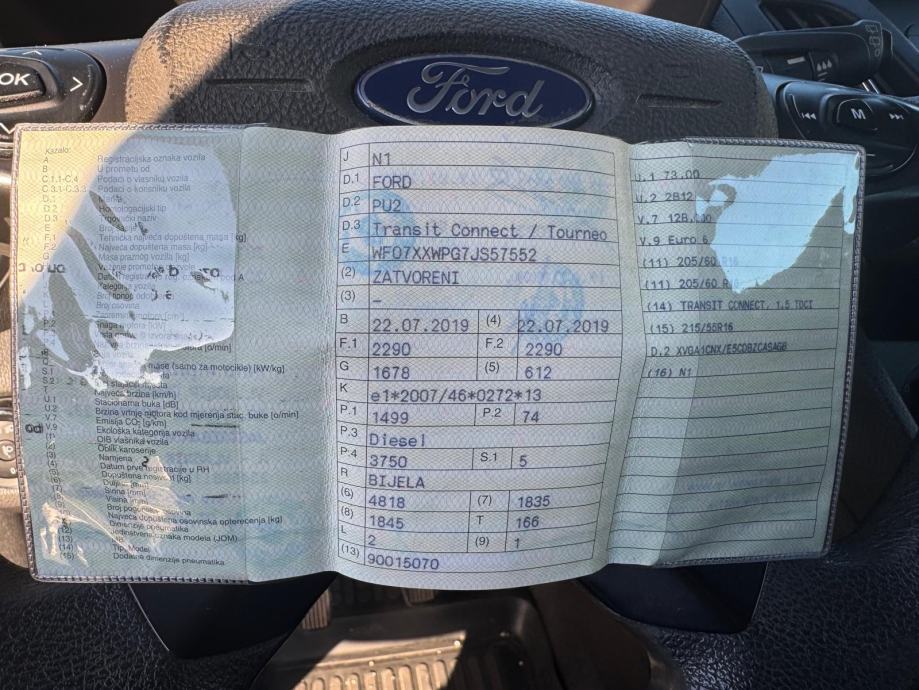 OK
Ford
M
Kazalo:
A Registracijska oznaka vozila
B U prometu od
C.1.1-C.4 Podaci o vlasniku vozila
C.3.1-C.3.3 Podaci o korisniku vozila
D.1 Marka
D.2 Homologacijski tip
D.3 Trgovački naziv
E
F.1 Tehnička najveća dopuštena masa [kg]
F.2 Najveća dopuštena masa [kg]
G Masa praznog vozila [kg]
mase (samo za motocikle) [kW/kg]
S.1
S.2
T Najveća brzina [km/h]
U.1 Stacionarna buka [dB]
U.2 Brzina vrtnje motora kod mjerenja stac. buke [o/min]
V.7 Emisija CO₂ [g/km]
V.9 Ekološka kategorija vozila
(1) OIB vlasnika vozila
(2) Oblik karoserije
(3) Namjena
(4) Datum prve registracije u RH
(5) Dopuštena nosivost [kg]
(6)
(7) Širina [mm]
(8) Visina [mm]
(9) Broj pogonskih osovina
(10) Najveća dopuštena osovinska opterećenja [kg]
(11) Dimenzije pneumatika
(12) Jedinstvena oznaka modela (JOM)
(13)
(14) Tip, Model
(15) Dodatne dimenzije pneumatika
J N1
D.1 FORD
D.2 PU2
D.3 Transit Connect / Tourneo
E WF07XXWPG7JS57552
(2) ZATVORENI
(3) -
B 22.07.2019 (4) 22.07.2019
F.1 2290 F.2 2290
G 1678 (5) 612
K e1*2007/46*0272*13
P.1 1499 P.2 74
P.3 Diesel
P.4 3750 S.1 5
R BIJELA
(6) 4818 (7) 1835
(8) 1845 T 166
L 2 (9) 1
(13) 90015070
U.1 73,00
U.2 2812
V.7 128,000
V.9 Euro 6
(11) 205/60 R16
(11) 205/60 R16
(14) TRANSIT CONNECT, 1.5 TDCI
(15) 215/55R16
D.2 XVGA1CNX/E5CDBZCASAGB
(16) N1